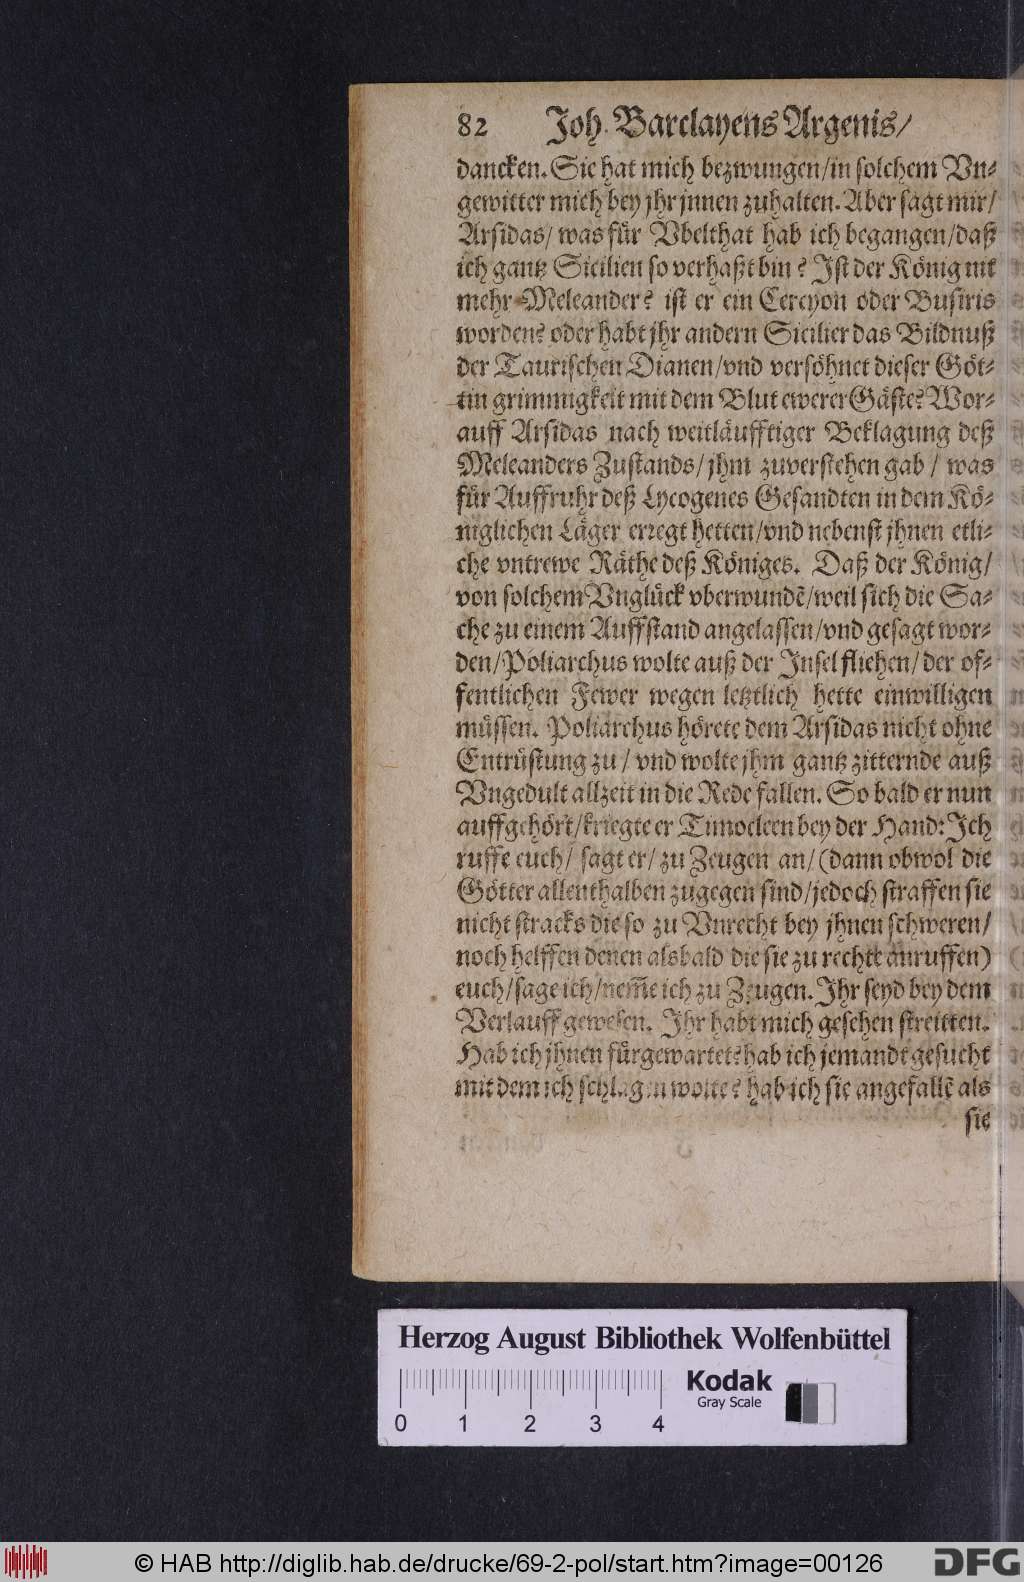 82 Joh. Barclayens Argenis/
dancken. Sie hat mich bezwungen/in solchem Vn-
gewitter mich bey jhr jnnen zuhalten. Aber sagt mir/
Arsidas/ was für Vbelthat hab ich begangen/daß
ich gantz Sicilien so verhaßt bin? Ist der König nit
mehr Meleander? ist er ein Cercyon oder Busiris
worden? oder habt jhr andern Sicilier das Bildnuß
der Taurischen Dianen/vnd versöhnet dieser Göt-
tin grimmigkeit mit dem Blut ewerer Gäste? Wor-
auff Arsidas nach weitläufftiger Beklagung deß
Meleanders Zustands/jhm zuverstehen gab/ was
für Auffruhr deß Lycogenes Gesandten in dem Kö-
niglichen Läger erregt hetten/vnd nebenst jhnen etli-
che vntrewe Räthe deß Königes. Daß der König/
von solchem Vnglück vberwundẽ/weil sich die Sa-
che zu einem Auffstand angelassen/vnd gesagt wor-
den/Poliarchus wolte auß der Insel fliehen/ der of-
fentlichen Fewer wegen letztlich hette einwilligen
müssen. Poliarchus hörete dem Arsidas nicht ohne
Entrüstung zu/ vnd wolte jhm gantz zitternde auß
Vngedult allzeit in die Rede fallen. So bald er nun
auffgehört/kriegte er Timocleen bey der Hand: Ich
ruffe euch/ sagt er/ zu Zeugen an/ (dann obwol die
Götter allenthalben zugegen sind/jedoch straffen sie
nicht stracks die so zu Vnrecht bey jhnen schweren/
noch helffen denen alsbald die sie zu rechte anruffen)
euch/sage ich/nem̃e ich zu Zeugen. Ihr seyd bey dem
Verlauff gewesen. Ihr habt mich gesehen streitten.
Hab ich jhnen fürgewartet? hab ich jemandt gesucht
mit dem ich schlagen wolte? hab ich sie angefallẽ als
sie
Herzog August Bibliothek Wolfenbüttel
Kodak
Gray Scale
0 1 2 3 4
© HAB http://diglib.hab.de/drucke/69-2-pol/start.htm?image=00126
DFG